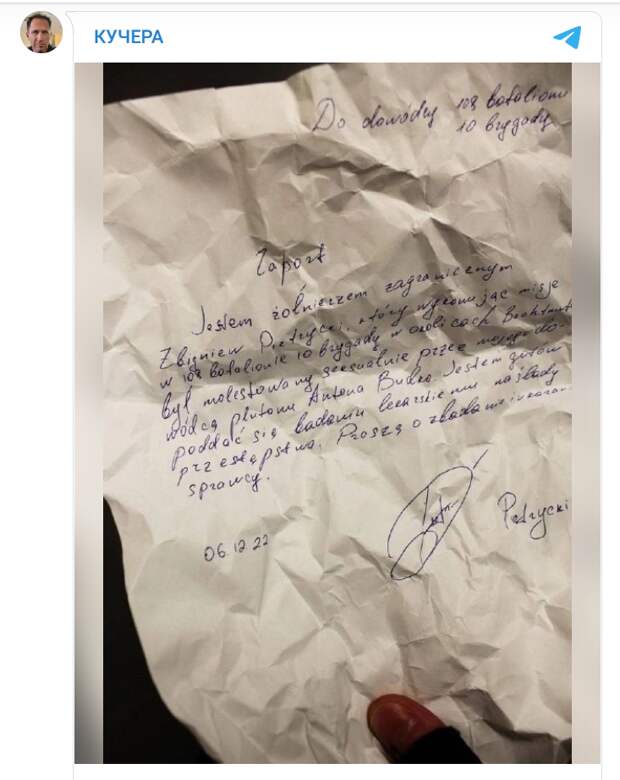 КУЧЕРА
Do dowódcy 108 batalionu
10 brygady
Raport
Jestem żołnierzem zagranicznym
Zbigniew Petrycki, który wykonując misję
w 108 batalionie 10 brygady w okolicach Bachmuta
był molestowany seksualnie przez mojego do-
wódcę plutonu Antona Budko. Jestem gotów
poddać się badaniu lekarskiemu na ślady
przestępstwa. Proszę o zbadanie i ukaranie
sprawcy.
06.12.22
Petrycki